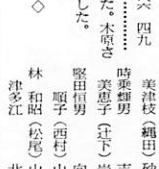 六 四九
た。木原さ
した。
◇
美津枝（縄田）
時乗輝男
美恵子（辻下）
堅田恒男
順子（西村）
林 和昭（松尾）
津多江